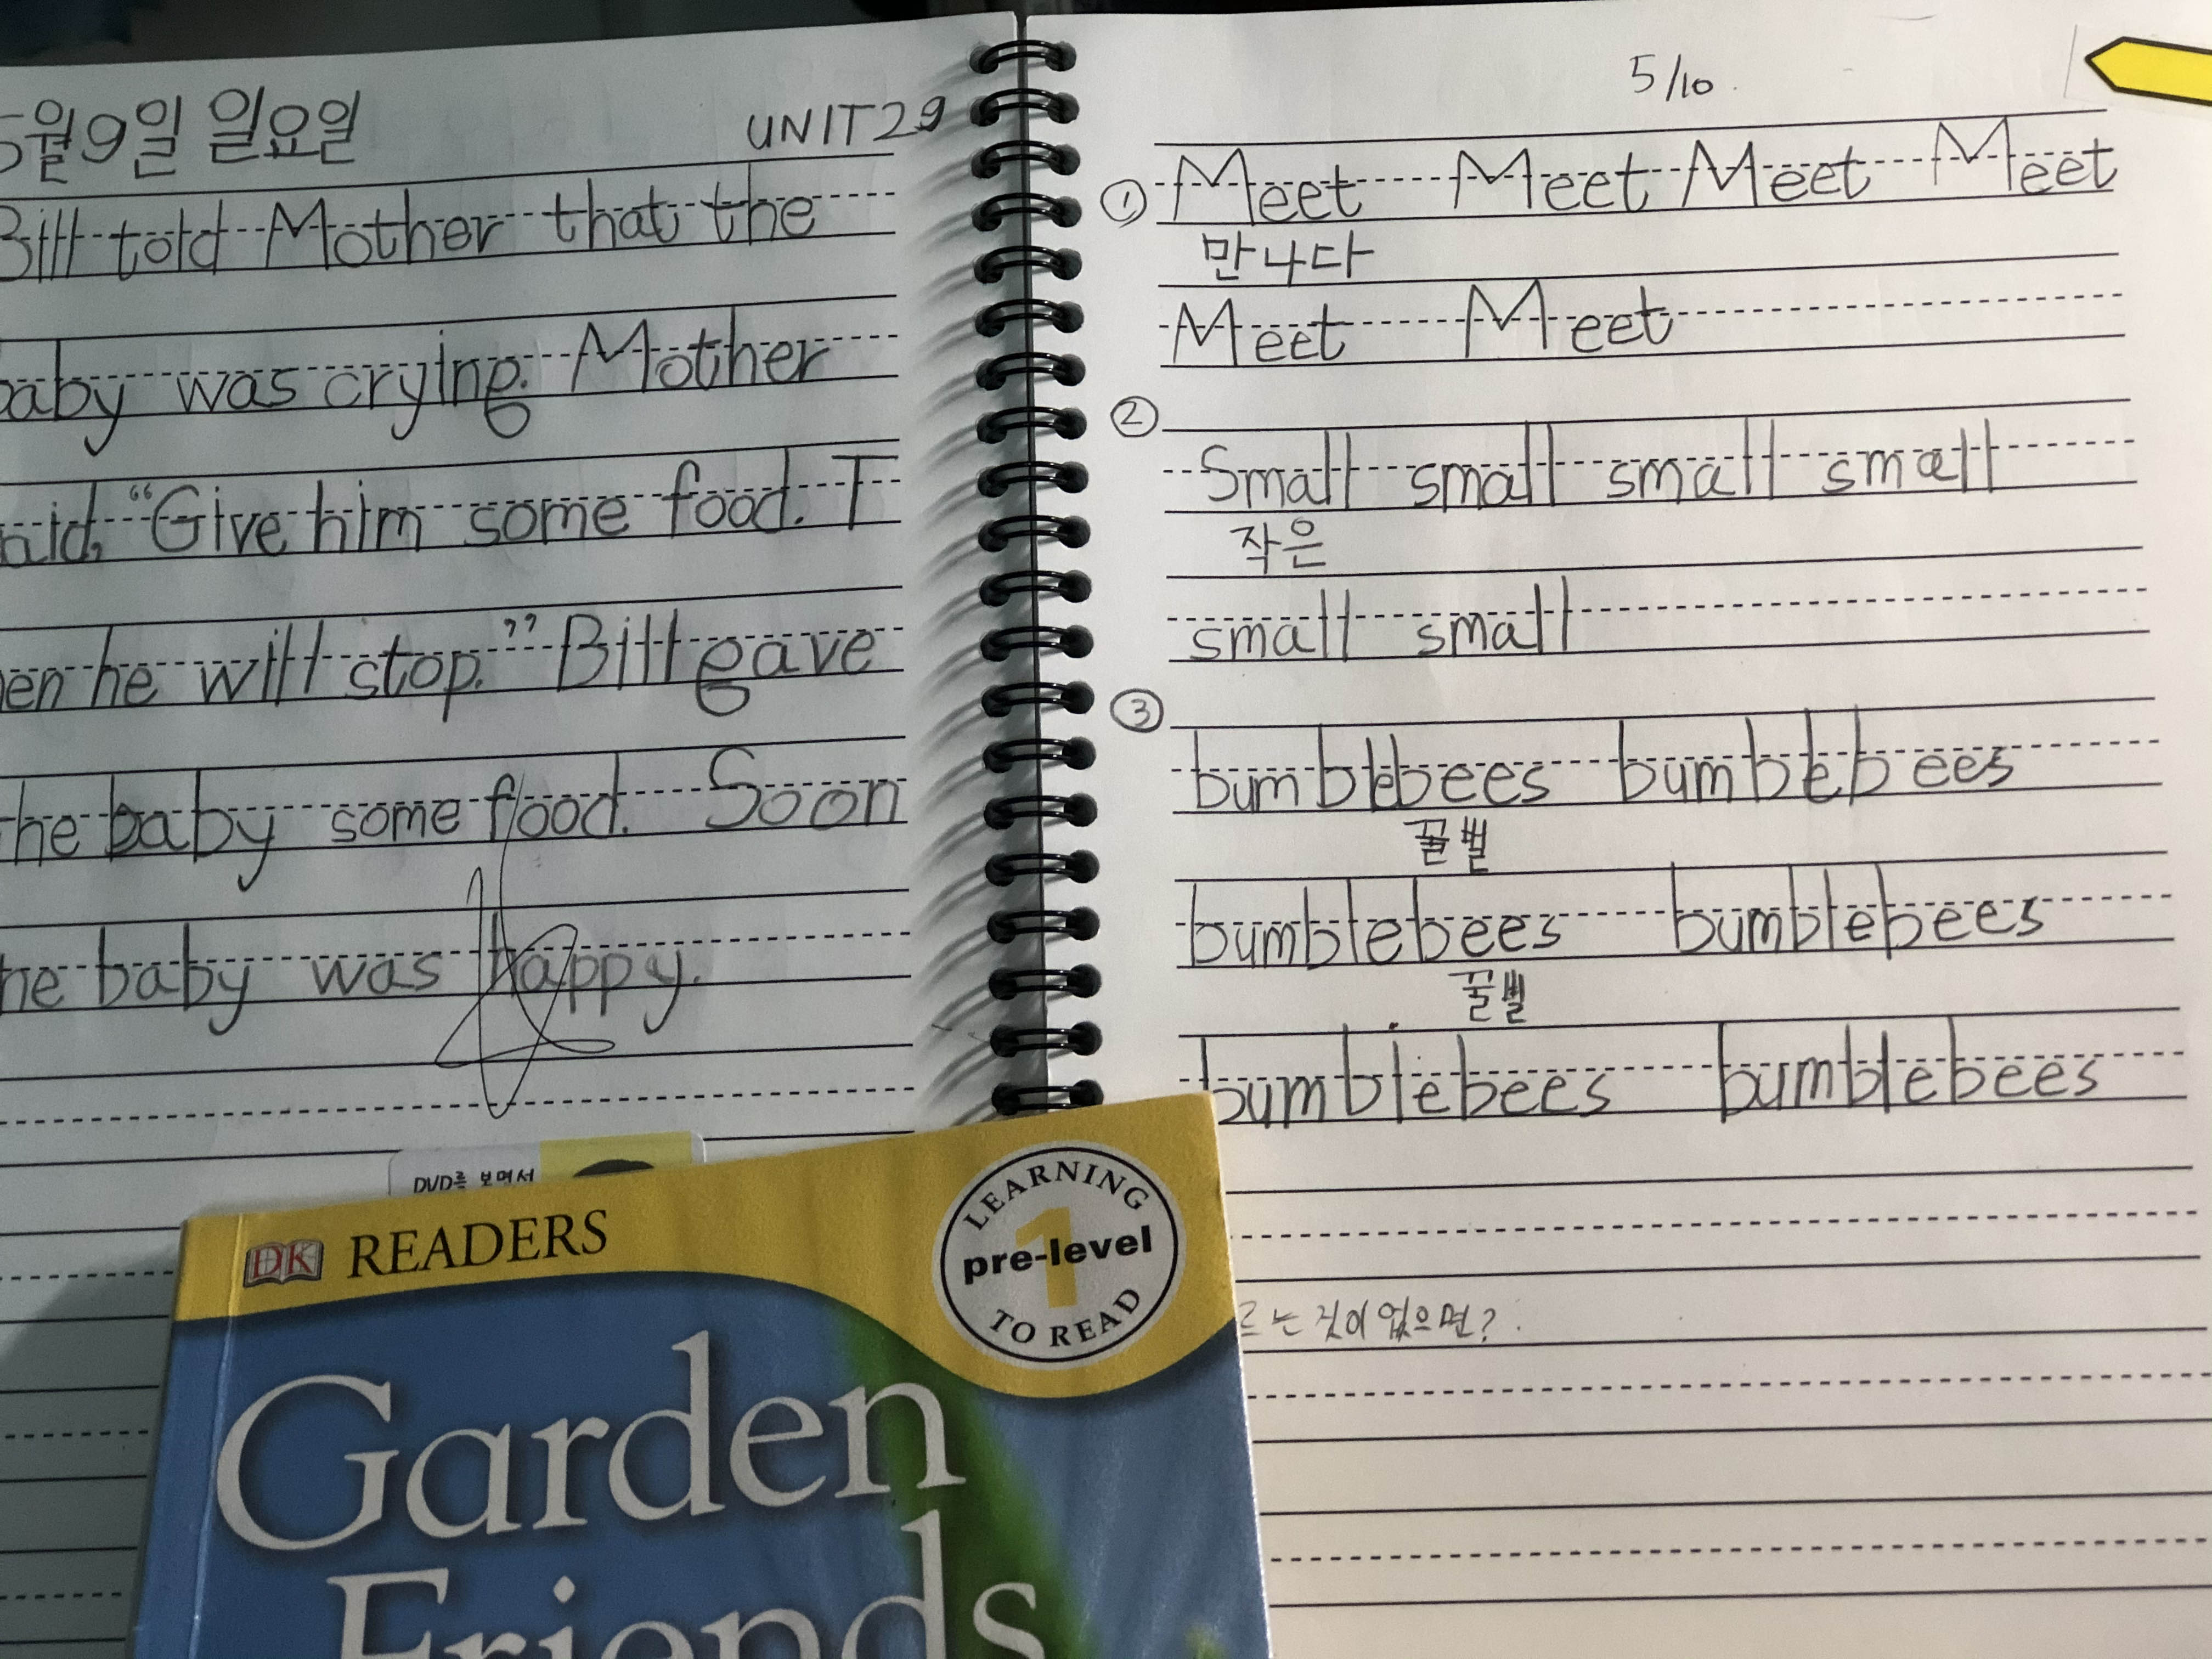 5월9일 일요일
UNIT29
Bill told Mother that the
baby was crying. Mother
aid, "Give him some food. T
en he will stop." Bill gave
the baby some food. Soon
he baby was happy.
5/10
① Meet Meet Meet Meet
만나다
Meet Meet
② Small small small small
작은
small small
③ bumblebees bumblebees
꿀벌
bumblebees bumblebees
꿀벌
bumblebees bumblebees
르는 것이 없으면?
DVD를 보면서
DK READERS
LEARNING
pre-level 1
TO READ
Garden
Friends